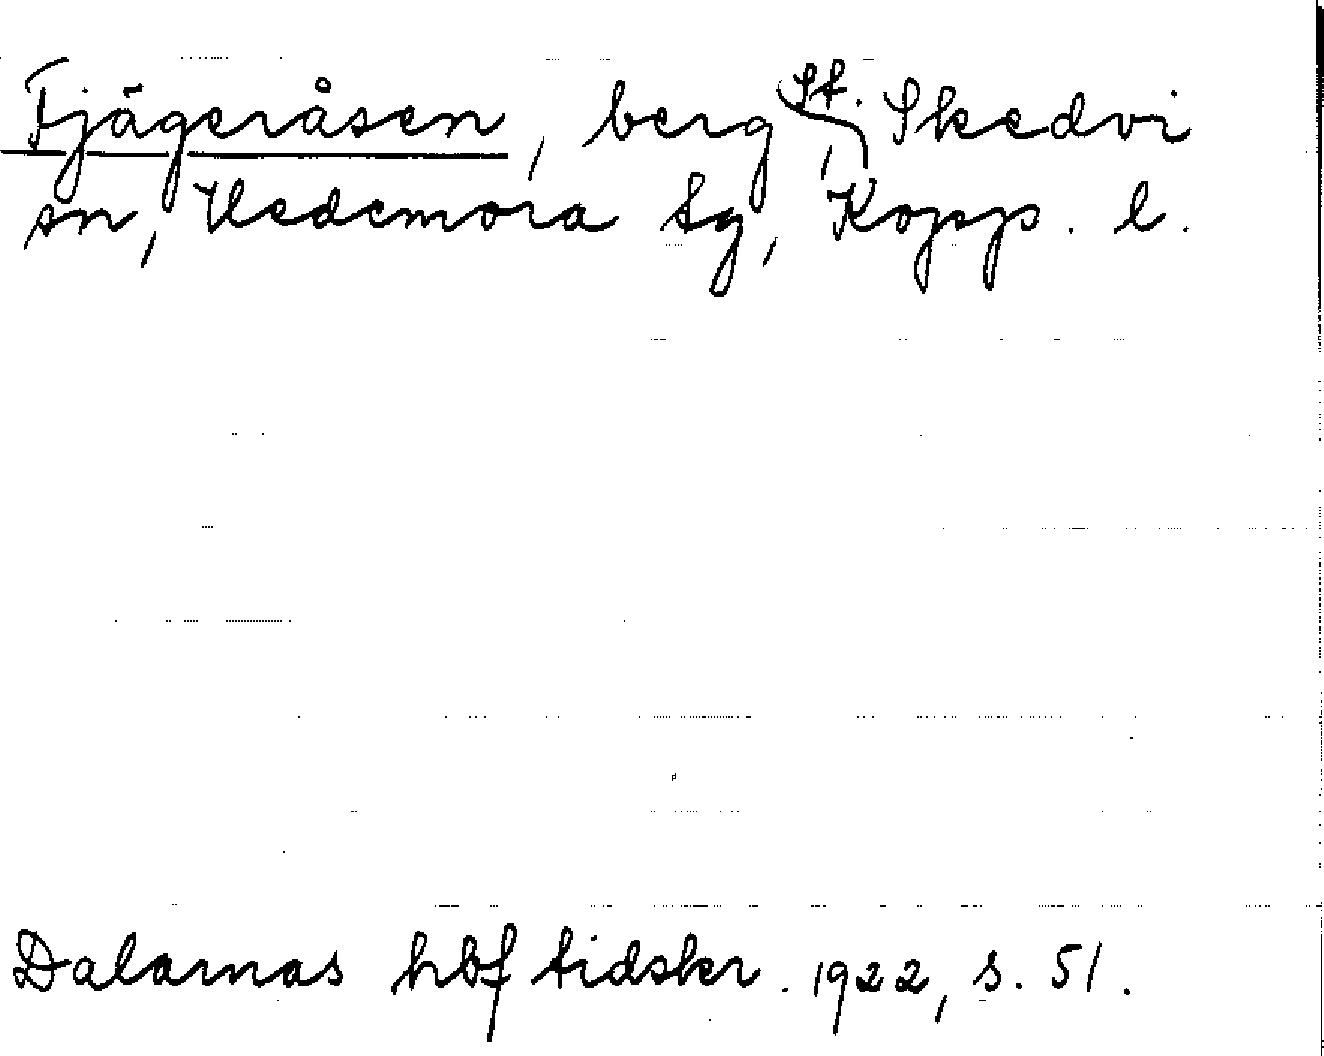 Fjägeråsen, berg, St. Skedvi
sn, Hedemora tg, Kopp. l.
Dalarnas hbf tidskr. 1922, s. 51.